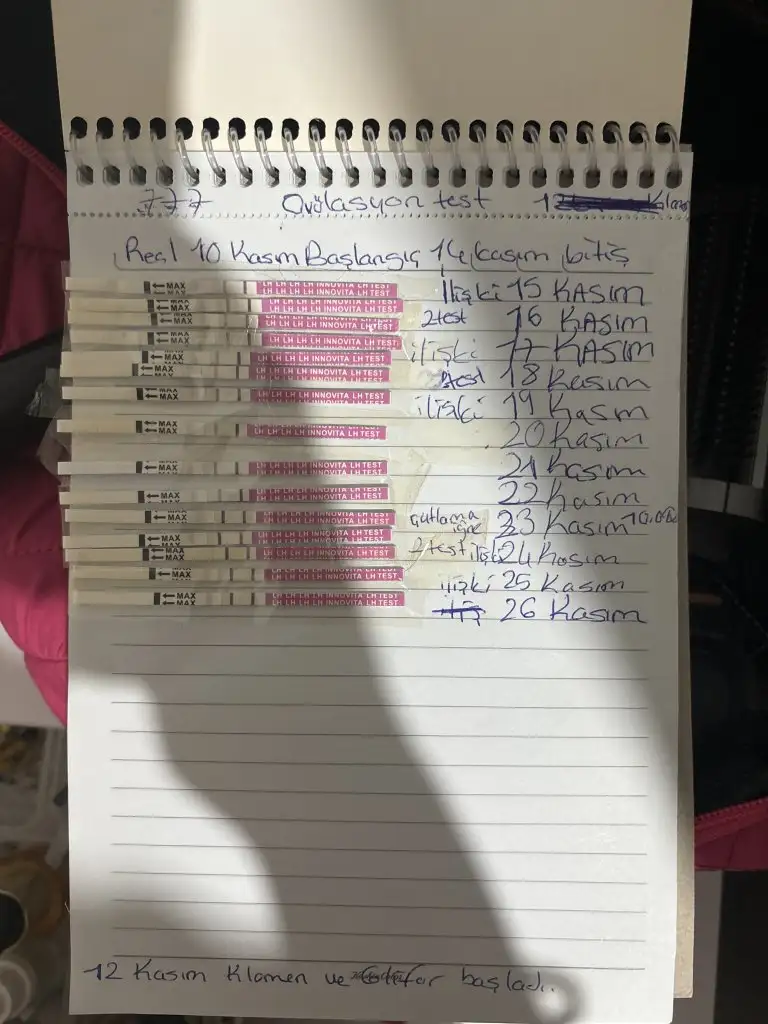 777 Ovülasyon test
Regl 10 Kasım Başlangıç 14 kasım bitiş
MAX LH LH LH LH INNOVITA LH TEST İlişki 15 KASIM
MAX LH LH LH LH INNOVITA LH TEST 2 test 16 KASIM
MAX LH LH LH LH INNOVITA LH TEST ilişki 17 KASIM
MAX LH LH LH LH INNOVITA LH TEST test 18 Kasım
MAX LH LH LH LH INNOVITA LH TEST ilişki 19 Kasım
MAX LH LH LH LH INNOVITA LH TEST 20 Kasım
MAX LH LH LH LH INNOVITA LH TEST 21 Kasım
MAX LH LH LH LH INNOVITA LH TEST 22 Kasım
MAX LH LH LH LH INNOVITA LH TEST çatlama iğne 23 Kasım 10.000
MAX LH LH LH LH INNOVITA LH TEST 2 test ilişki 24 Kasım
MAX LH LH LH LH INNOVITA LH TEST ilişki 25 Kasım
MAX LH LH LH LH INNOVITA LH TEST 26 Kasım
12 Kasım Klomen ve başladı..